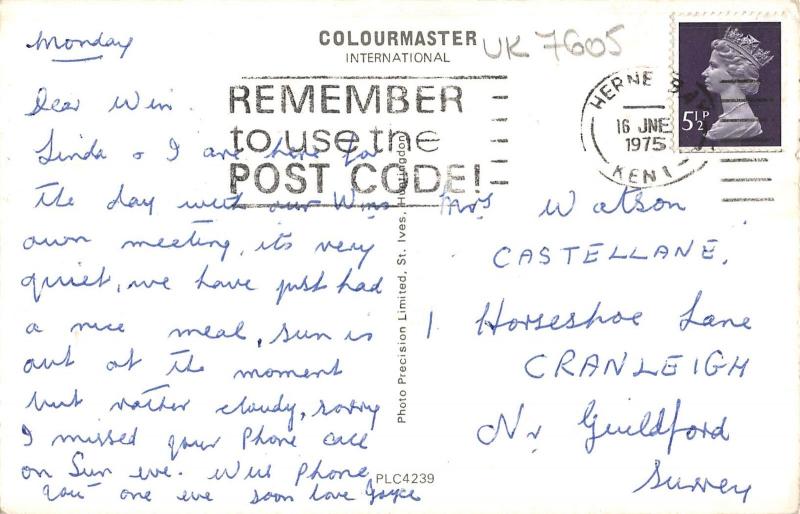 Monday
Dear Win.
Linda & I are here for
the day with our Wins
own meeting, its very
quiet, we have just had
a nice meal, sun is
out at the moment
but rather cloudy, sorry
I missed your Phone call
on Sun eve. Will Phone
you one eve soon love Joyce
COLOURMASTER
INTERNATIONAL
UK 7605
REMEMBER
to use the
POST CODE!
HERNE BAY
16 JNE
1975
KENT
5½P
Photo Precision Limited, St. Ives, Huntingdon
PLC4239
Mrs Watson
CASTELLANE,
1 Horseshoe Lane
CRANLEIGH
Nr Guildford
Surrey